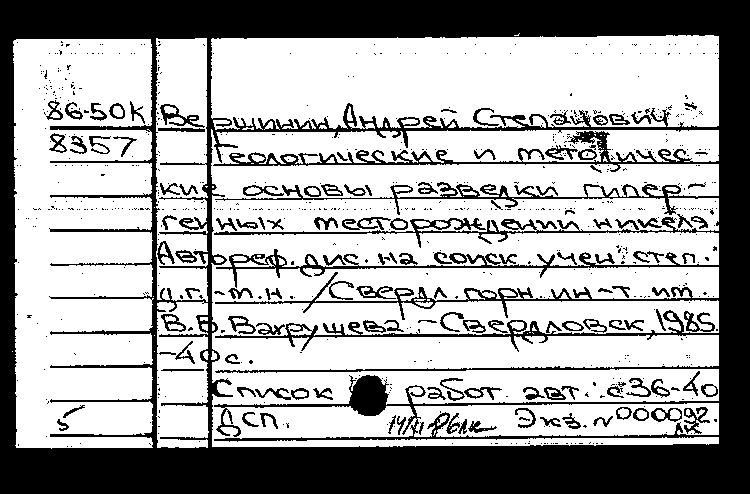 86-50К Вершинин, Андрей Степанович.
8357 Геологические и методичес-
кие основы разведки гипер-
генных месторождений никеля.
Автореф. дис. на соиск. учен. степ.
д.г.-м.н. / Свердл. горн. ин-т им.
В.В. Вахрушева. - Свердловск, 1985
-40 с.
Список работ авт.: с 36-40
5 ДСП. Экз. N 000092